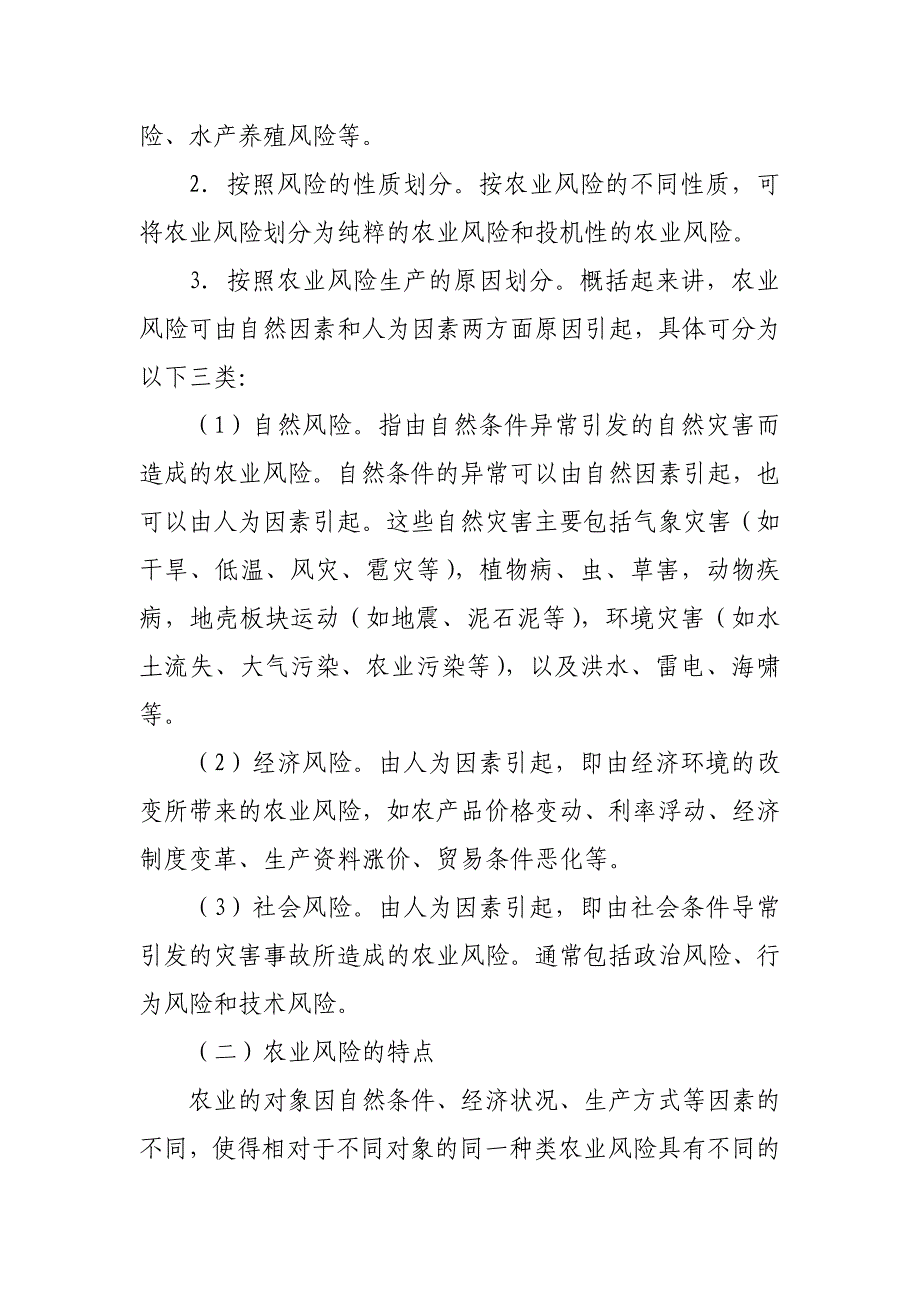 险、水产养殖风险等。
2．按照风险的性质划分。按农业风险的不同性质，可
将农业风险划分为纯粹的农业风险和投机性的农业风险。
3．按照农业风险生产的原因划分。概括起来讲，农业
风险可由自然因素和人为因素两方面原因引起，具体可分为
以下三类：
（1）自然风险。指由自然条件异常引发的自然灾害而
造成的农业风险。自然条件的异常可以由自然因素引起，也
可以由人为因素引起。这些自然灾害主要包括气象灾害（如
干旱、低温、风灾、雹灾等），植物病、虫、草害，动物疾
病，地壳板块运动（如地震、泥石泥等），环境灾害（如水
土流失、大气污染、农业污染等），以及洪水、雷电、海啸
等。
（2）经济风险。由人为因素引起，即由经济环境的改
变所带来的农业风险，如农产品价格变动、利率浮动、经济
制度变革、生产资料涨价、贸易条件恶化等。
（3）社会风险。由人为因素引起，即由社会条件导常
引发的灾害事故所造成的农业风险。通常包括政治风险、行
为风险和技术风险。
（二）农业风险的特点
农业的对象因自然条件、经济状况、生产方式等因素的
不同，使得相对于不同对象的同一种类农业风险具有不同的